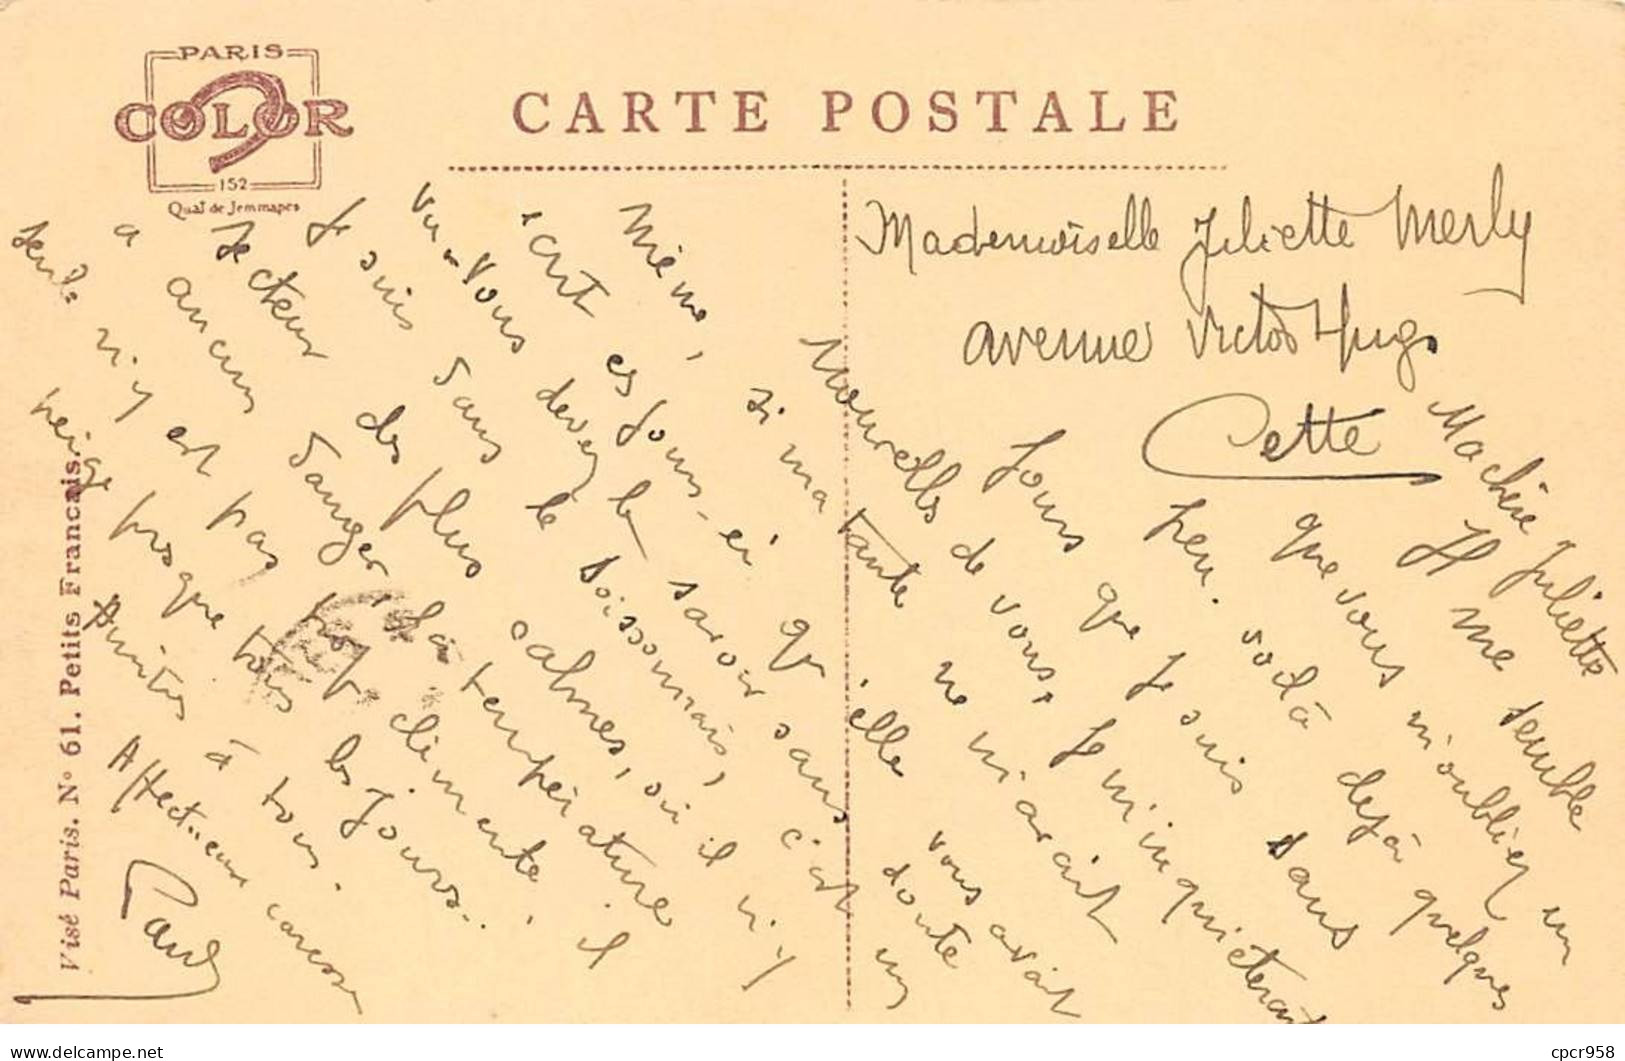 PARIS
COLOR
152
Quai de Jemmapes
CARTE POSTALE
Mademoiselle Juliette Merly
avenue Victor Hugo
Cette
Ma chère Juliette
Il me semble
que vous m'oubliez un
peu. voilà dejà quelques
jours que je suis sans
Nouvelles de vous. Je m'inquièterait
même, si ma tante ne m'avait
écrit ces jours-ci qu'elle vous avait
vu. Vous devez le savoir sans doute
Je suis dans le Soissonnais, c'est un
secteur des plus calmes, où il n'y
a aucun danger. La température
seule n'y est pas trop clémente, il
neige presque tous les jours..
Amitiés à tous.
Affectueuse caresse
Paul
Visé Paris. N° 61. Petits Français.
cpcr958